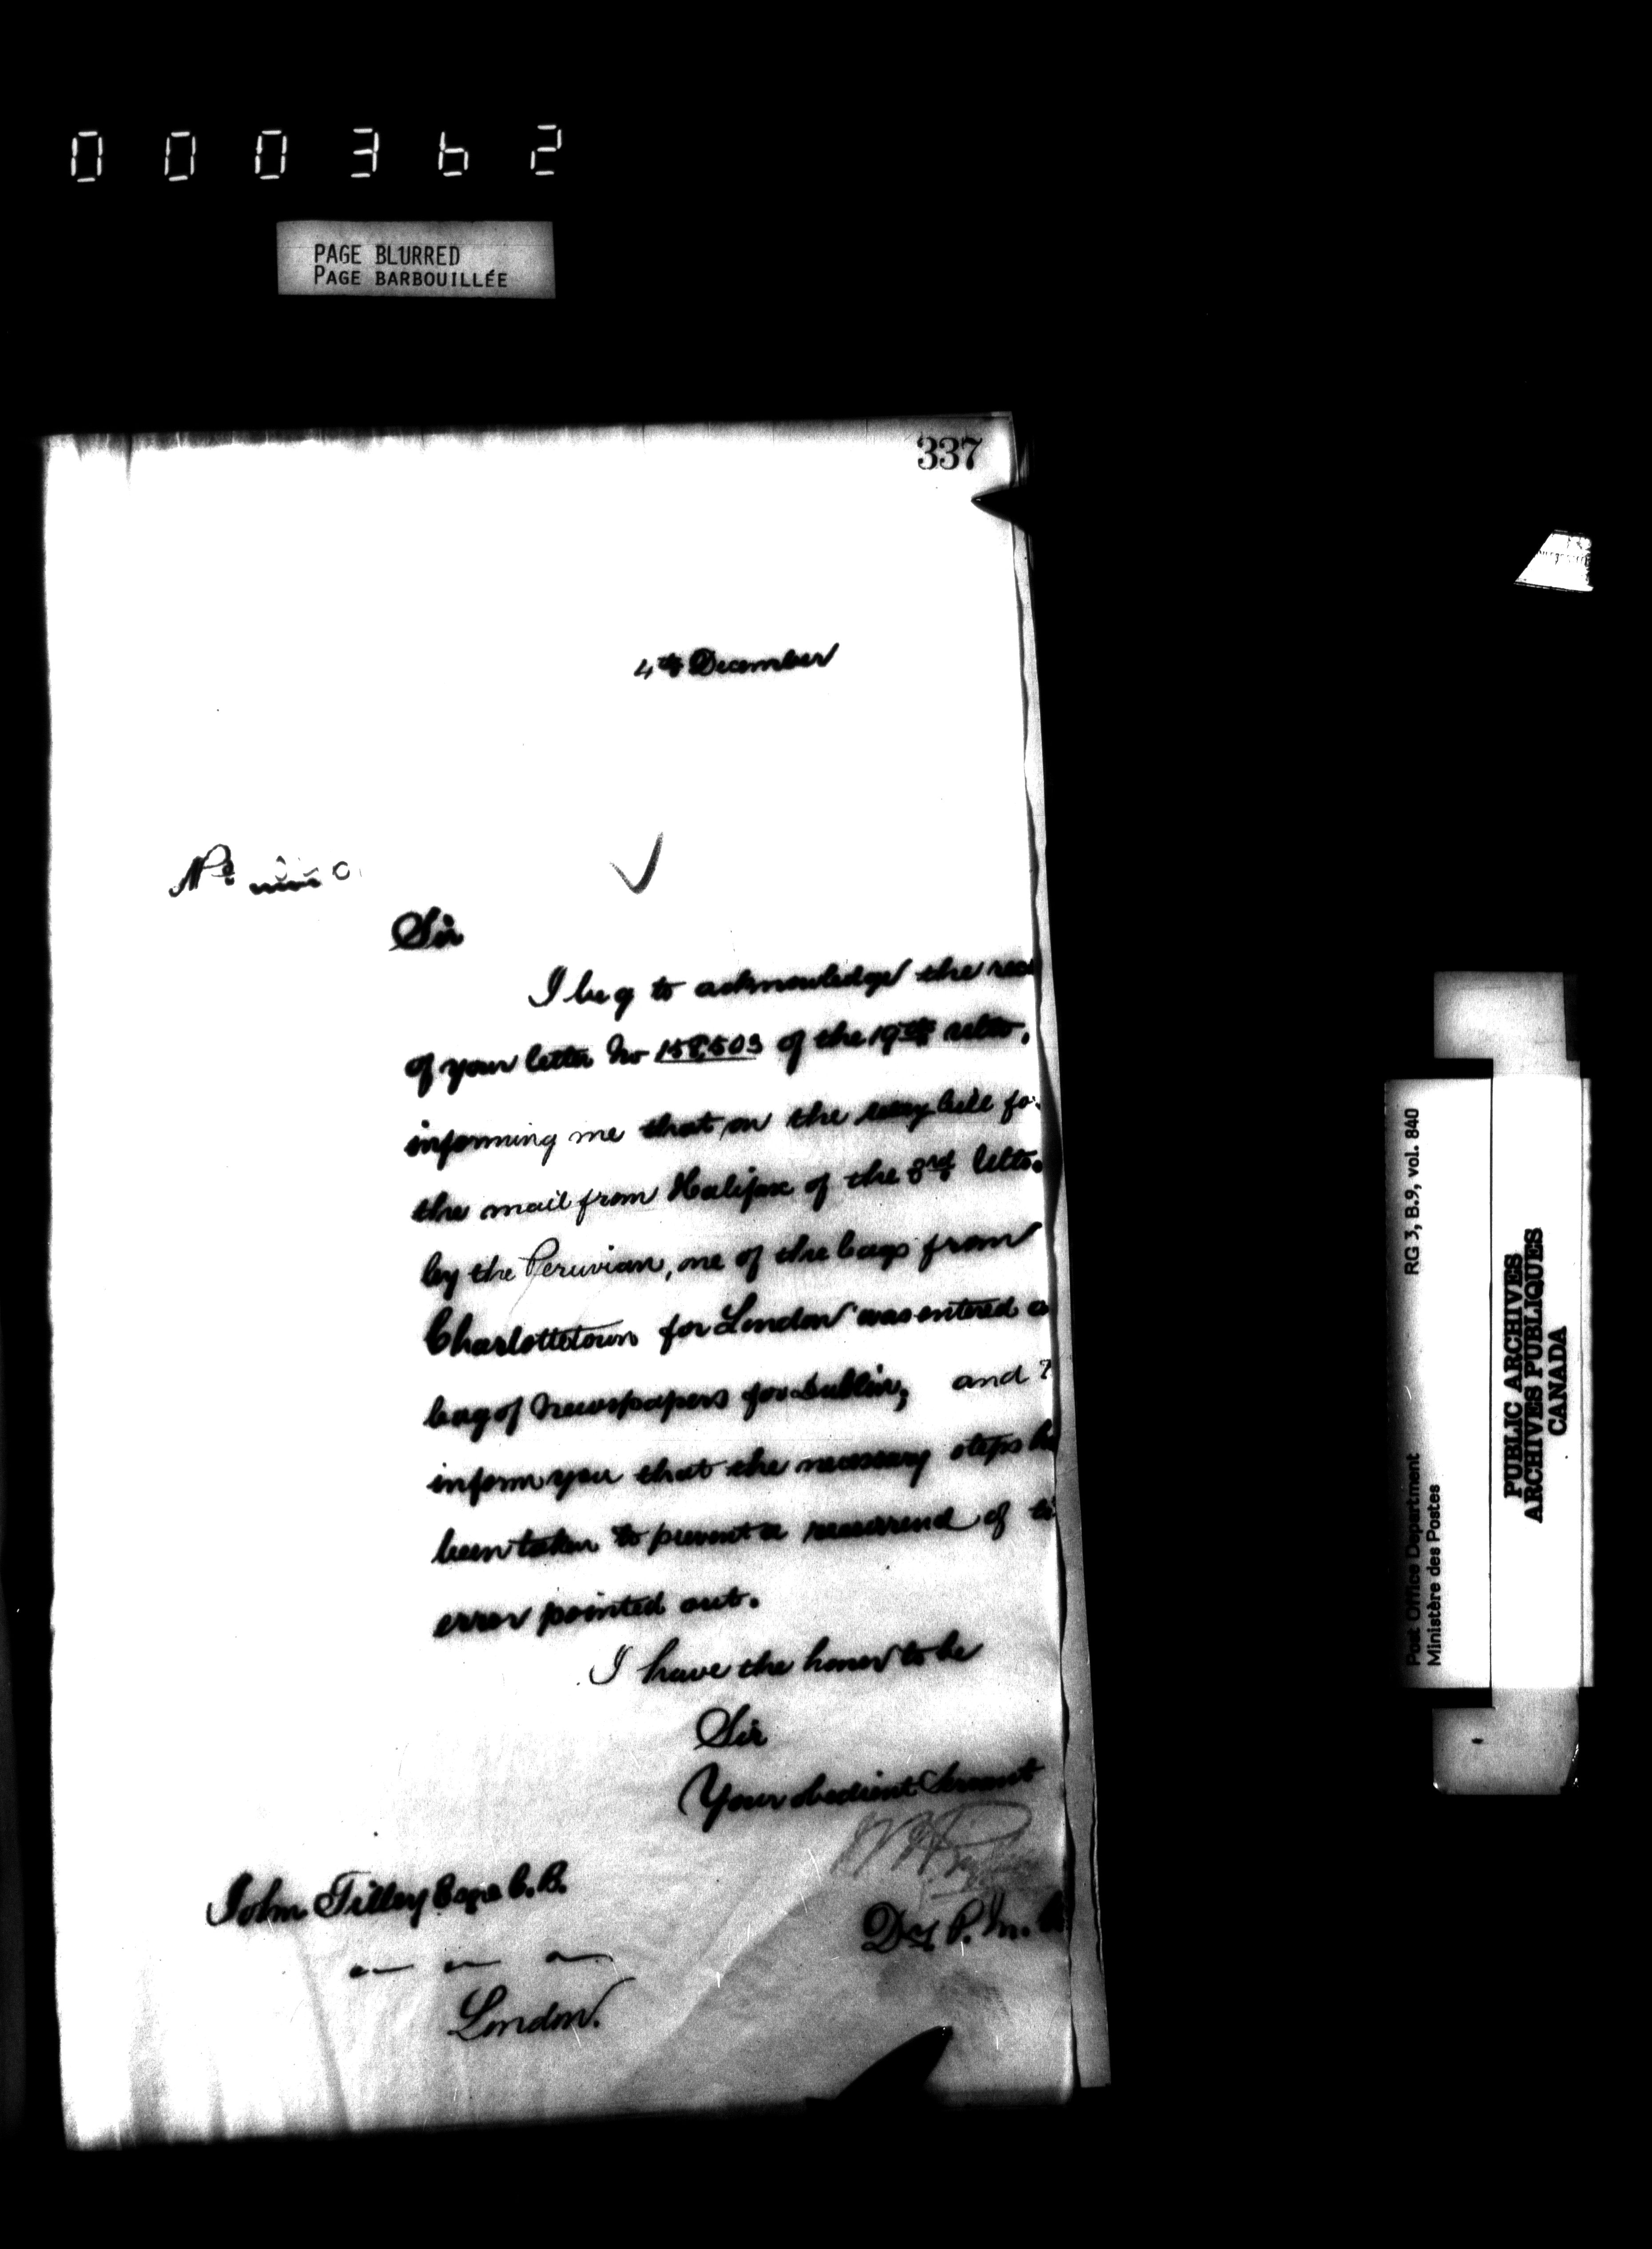 000362
PAGE BLURRED
PAGE BARBOUILLÉE
337
4th December
No.
Sir
I beg to acknowledge the rec
of your letter No 158,503 of the 19th ulto.
informing me that on the way bill for
the mail from Halifax of the 3rd Ulto.
by the Peruvian, one of the bags from
Charlottetown for London was entered a
bag of Newspapers for Dublin, and
inform you that the necessary steps ha
been taken to prevent a of
error pointed out.
I have the honor to be
Sir
Your obedient Servant
John Tilley Esqre C.B.
Dy. P. M.
London.
RG 3, B.9, vol. 840
Post Office Department
Ministère des Postes
PUBLIC ARCHIVES
ARCHIVES PUBLIQUES
CANADA